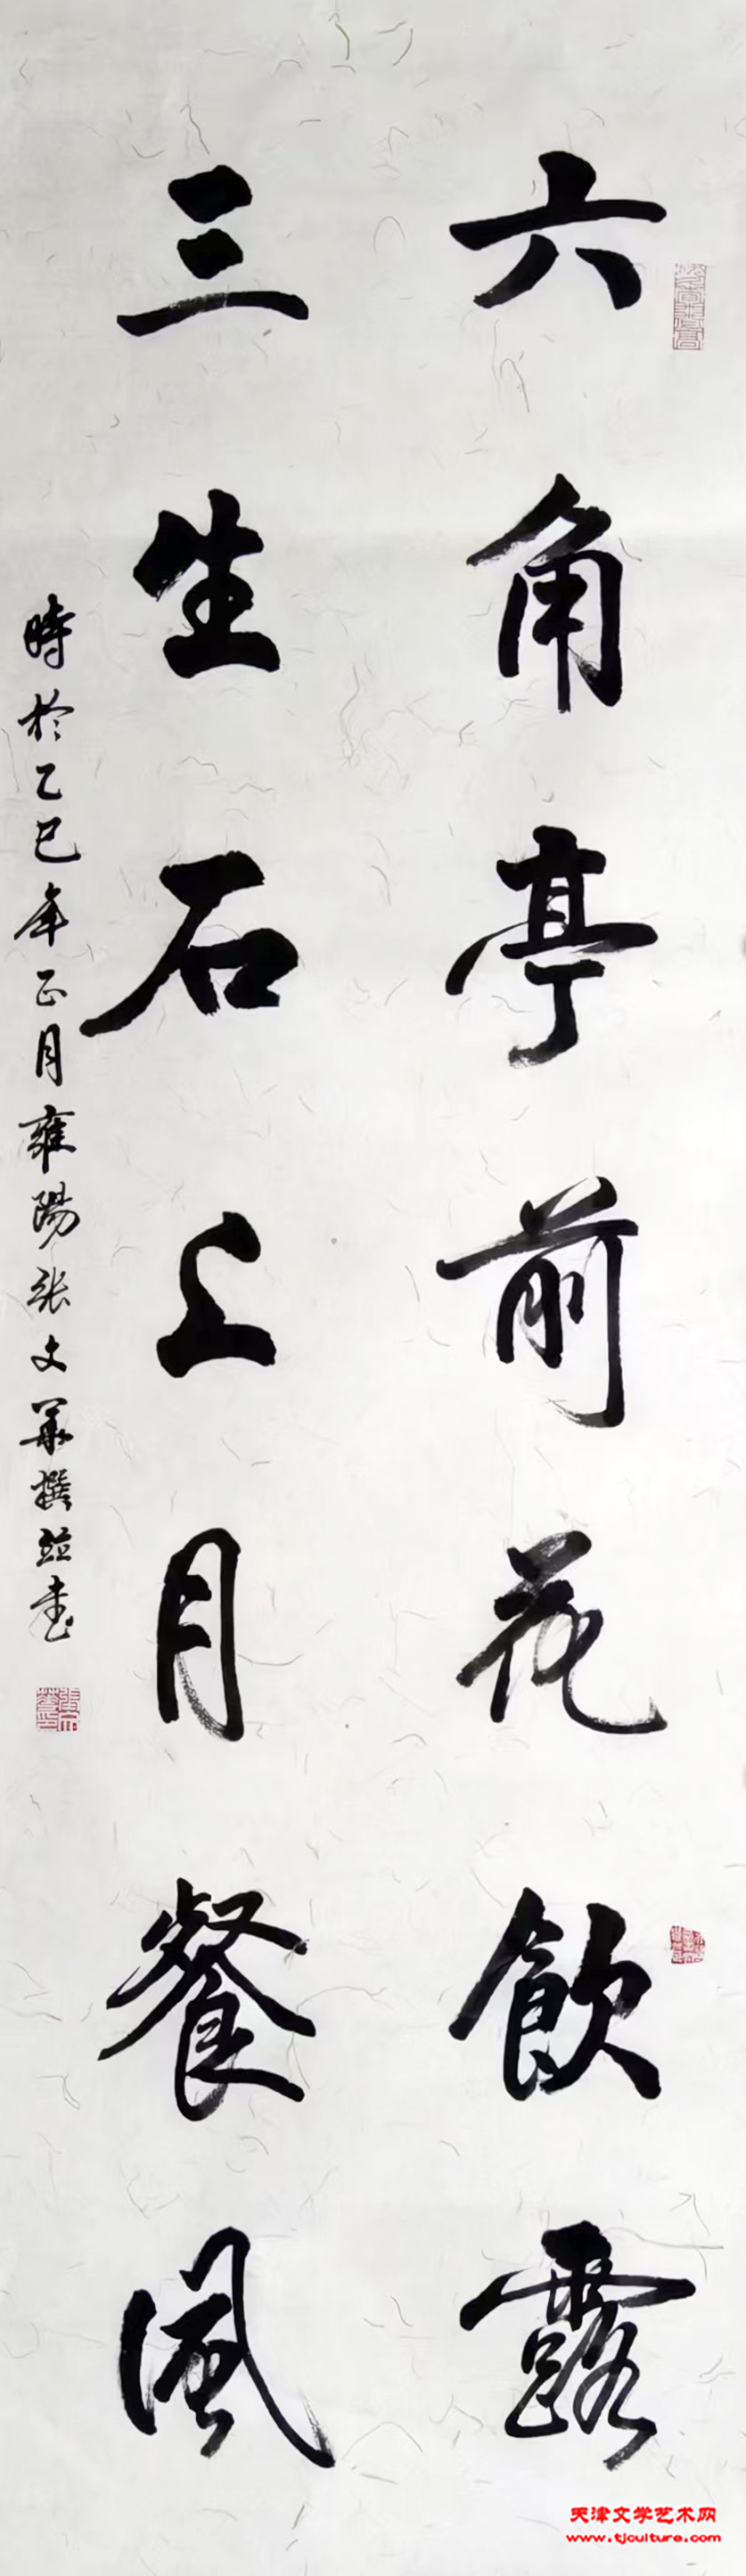 六角亭前花飲露
三生石上月餐風
時於乙巳年正月雍陽张文華撰並书
天津文学艺术网
www.tjculture.com